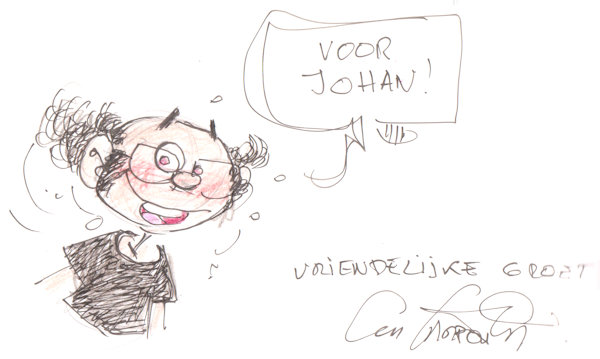 VOOR
JOHAN!
VRIENDELIJKE GROET